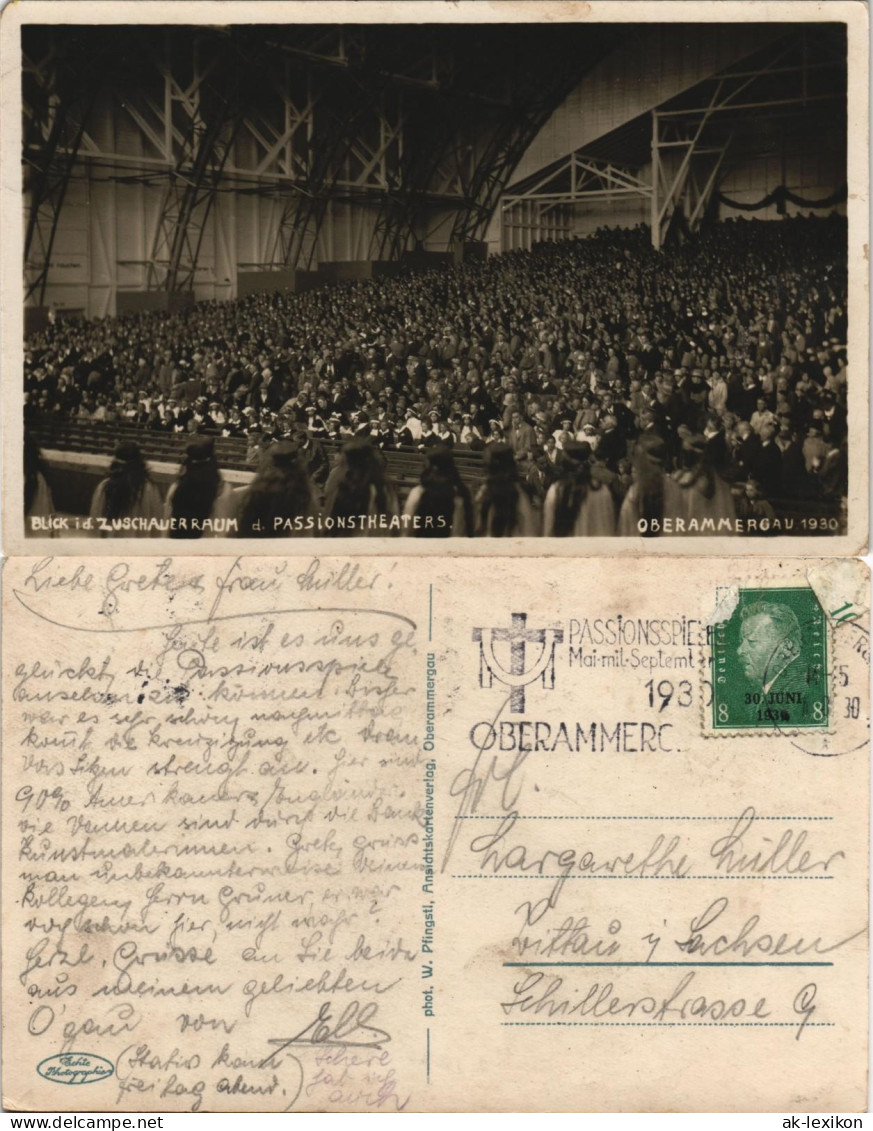 BLICK i. d. ZUSCHAUERRAUM d. PASSIONSTHEATERS. OBERAMMERGAU 1930
Liebe Grete u. Frau Müller!
Heute ist es uns ge
glückt, die Passionsspiele
ansehen zu können. Bisher
war es sehr schön, nachmittag
komt die Kreuzigung etc dran
Das Sitzen strengt an. Hier sind
90% Amerikaner, Engländer.
die Damen sind durch die Bank
Kunstmalerinnen. Grete grüsse
man unbekannterweise Deinen
Kollegen Herrn Gruner, er war
doch schon hier, nicht wahr?
Herzl. Grüsse an Sie beide
aus meinem geliebten
O'gau von Ell.
(Stativ kam
freitag abend.)
Schere
hab ich
auch
Echte
Photographie
phot. W. Pfingstl, Ansichtskartenverlag, Oberammergau
PASSIONSSPIELE
Mai-mit-Septemt
1930
OBERAMMERG.
Deutsches Reich
30. JUNI
1930
8 8
30
Frl.
Margarethe Müller
Zittau i/ Sachsen
Schillerstrasse 9
ak-lexikon